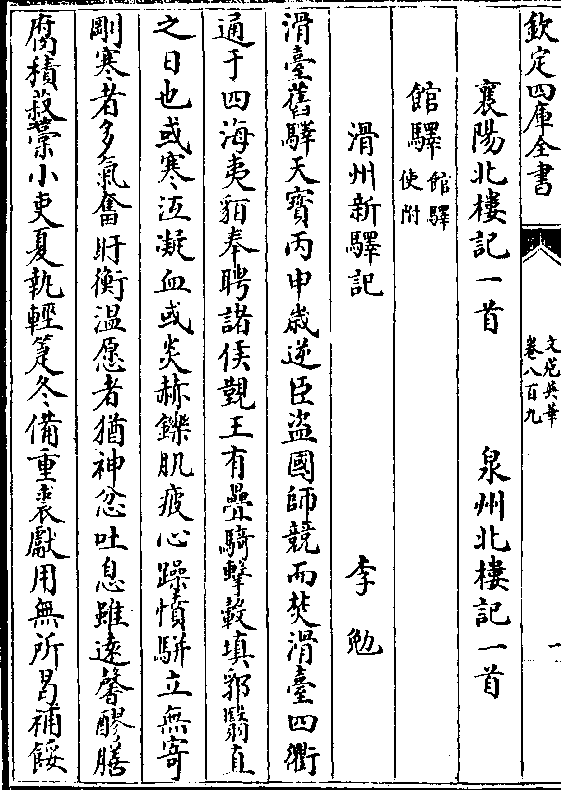 欽定四庫全書
文苑英華
卷八百九
一
襄陽北樓記一首 泉州北樓記一首
館驛館驛使附
滑州新驛記 李勉
滑臺舊驛天寳丙申歳逆臣盜國師競而焚滑臺四衢
通于四海夷貊奉聘諸侯覲王有疊騎擊轂填郛翳直
之日也或寒沍凝血或炎赫鑠肌疲心躁憤駢立無寄
剛寒者多氣奮盱衡溫愿者猶神忿吐息雖逺馨醪膳
腐積菽藁小吏夏執輕箑冬備重裘獻用無所曷補餒